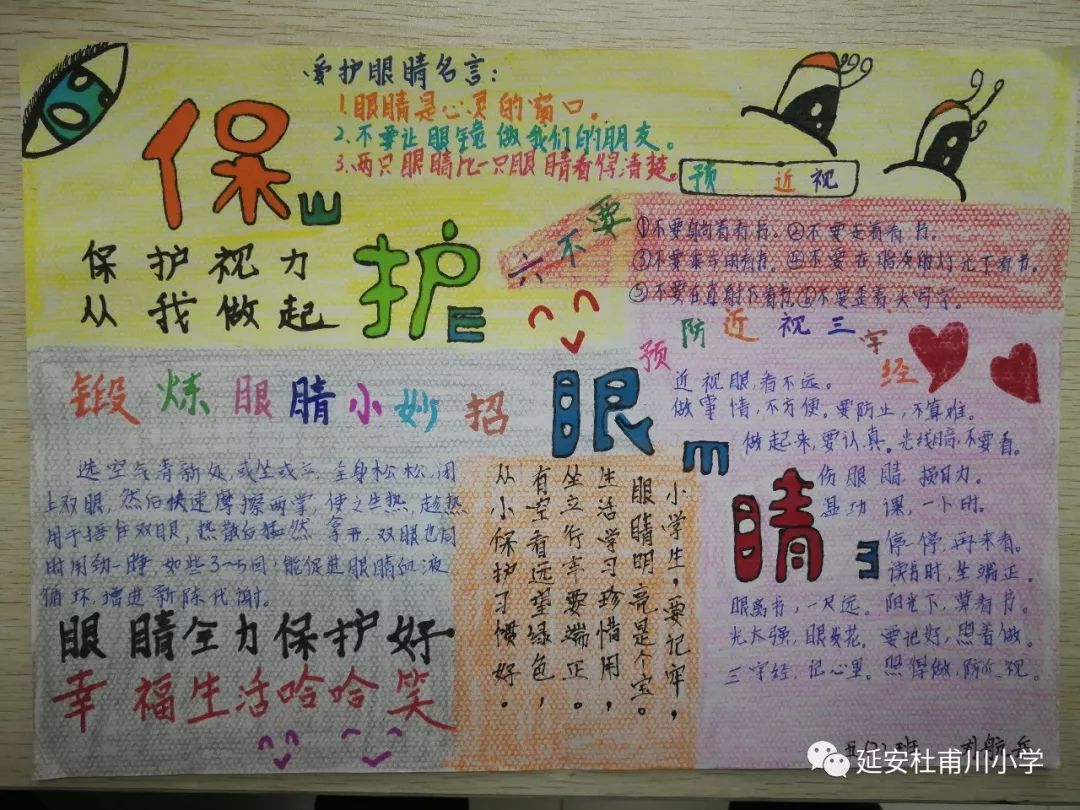 爱护眼睛名言：
1.眼睛是心灵的窗口。
2.不要让眼镜做我们的朋友。
3.两只眼睛比一只眼睛看得清楚。
保
护
眼
睛
E
保护视力
从我做起
预 近视
六不要
①不要躺着看书。②不要走着看书。
③不要乘车时看书。④不要在暗淡的灯光下看书。
⑤不要在直射下看书。⑥不要歪着头写字。
预防近视三字经
近视眼，看不远。
做事情，不方便。要防止，不算难。
做起来，要认真。光线暗，不要看。
伤眼睛 损目力。
功课，一小时。
停一停，再来看。
读书时，坐端正。
眼离书，一尺远。阳光下，莫看书。
光太强，眼发花。要记好，照着做。
三字经，记心里。照得做，防近视。
锻炼眼睛小妙招
选空气清新处，或坐或立，全身松松，闭
上双眼，然后快速摩擦两掌，使之生热，趁热
用手捂住双眼，热散后猛然拿开，双眼也同
时用劲一睁，如些3~5回，能促进眼睛血液
循环，增进新陈代谢。
眼睛全力保护好
幸福生活哈哈笑
小学生，要记牢，
眼睛明亮是个宝。
生活学习珍惜用，
坐立行卒要端正。
有空看远望绿色，
从小保护习惯好。
班
延安杜甫川小学